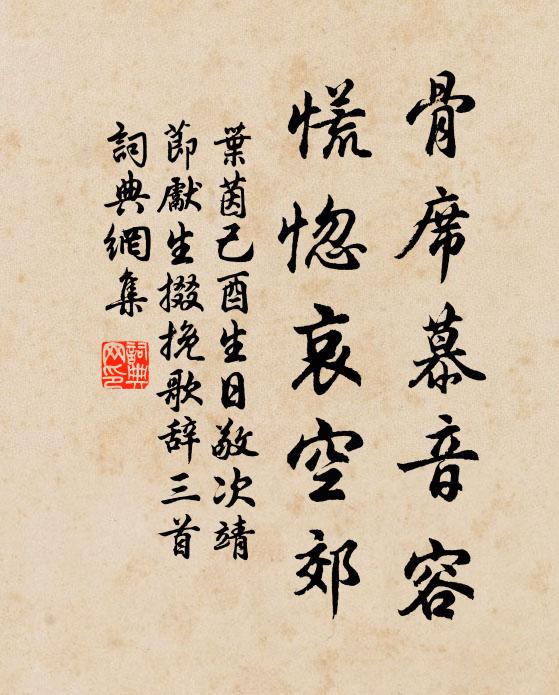 骨席慕音容
慌惚哀空郊
葉茵己酉生日敬次靖
節獻生掇挽歌辞三首
詞典網集
詞典
网印